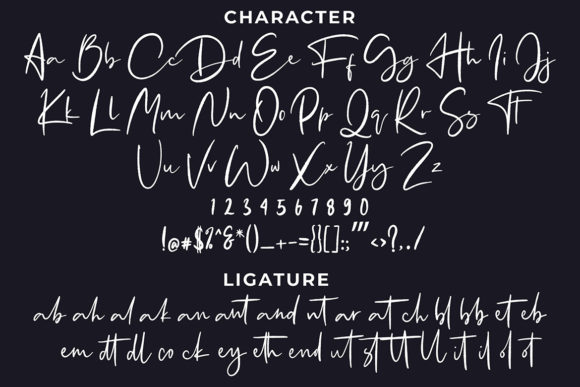 CHARACTER
Aa Bb Cc Dd Ee Ff Gg Hh Ii Jj
Kk Ll Mm Nn Oo Pp Qq Rr Ss Tt
Uu Vv Ww Xx Yy Zz
1 2 3 4 5 6 7 8 9 0
!@#$%^&*()_+-={}[]:;"'<>?,./
LIGATURE
ab ah al ak an ant and ut ar at ch bl bb et eb
em dt dl co ck ey eth end wt st tt ll it il of ot